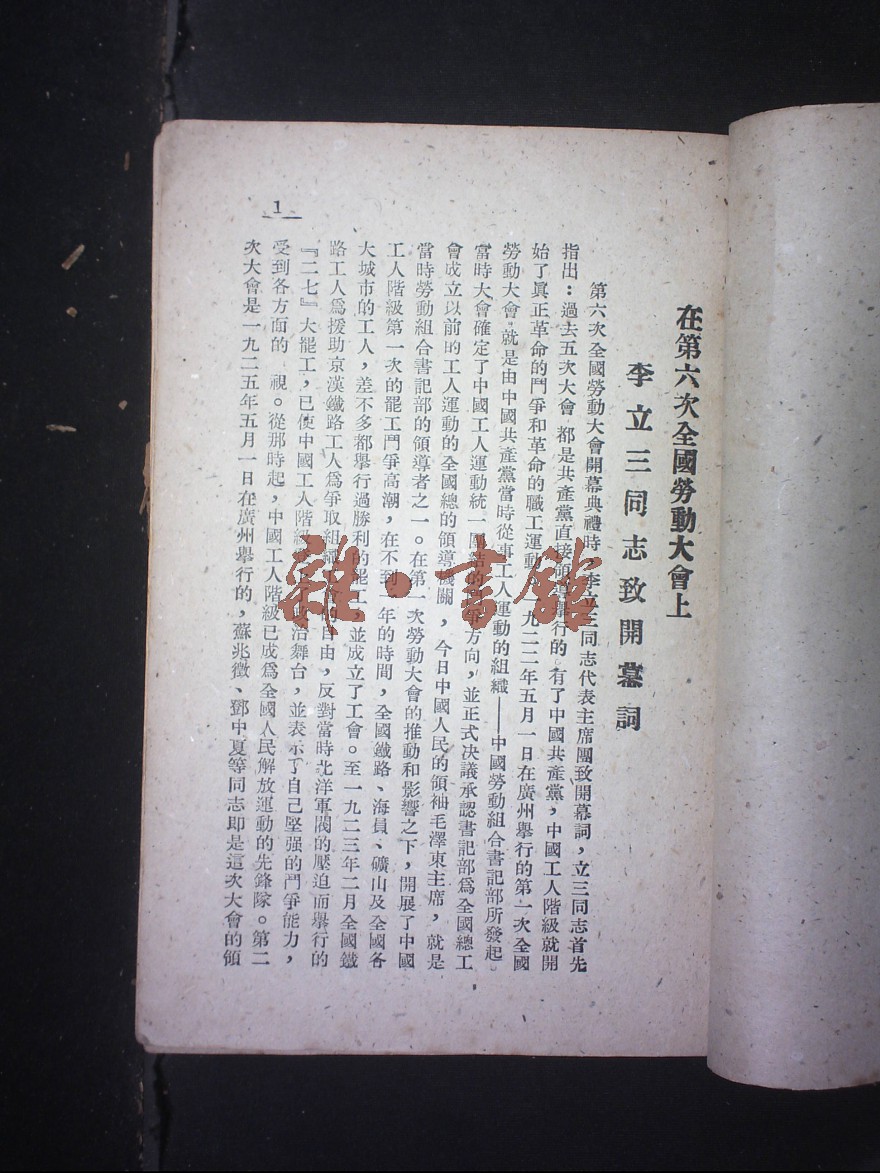 在第六次全國勞動大會上
李立三同志致開幕詞
第六次全國勞動大會開幕典禮時 李立三同志代表主席團致開幕詞，立三同志首先
指出：過去五次大會 都是共產黨直接領導舉行的 有了中國共產黨，中國工人階級就開
始了眞正革命的鬥爭和革命的職工運動 一九二二年五月一日在廣州舉行的第一次全國
勞動大會，就是由中國共產黨當時從事工人運動的組織——中國勞動組合書記部所發起。
當時大會確定了中國工人運動統一團結的 方向，並正式決議承認書記部爲全國總工
會成立以前的工人運動的全國總的領導機關，今日中國人民的領袖毛澤東主席，就是
當時勞動組合書記部的領導者之一。在第一次勞動大會的推動和影響之下，開展了中國
工人階級第一次的罷工鬥爭高潮，在不到一年的時間，全國鐵路、海員、礦山及全國各
大城市的工人，差不多都舉行過勝利的罷工，並成立了工會。至一九二三年二月全國鐵
路工人爲援助京漢鐵路工人爲爭取組織 自由，反對當時北洋軍閥的壓迫而舉行的
『二七』大罷工，已使中國工人階級 政治舞台，並表示了自己堅强的鬥爭能力，
受到各方面的 視。從那時起，中國工人階級已成爲全國人民解放運動的先鋒隊。第二
次大會是一九二五年五月一日在廣州舉行的，蘇兆徵、鄧中夏等同志即是這次大會的領
1
雜·書館